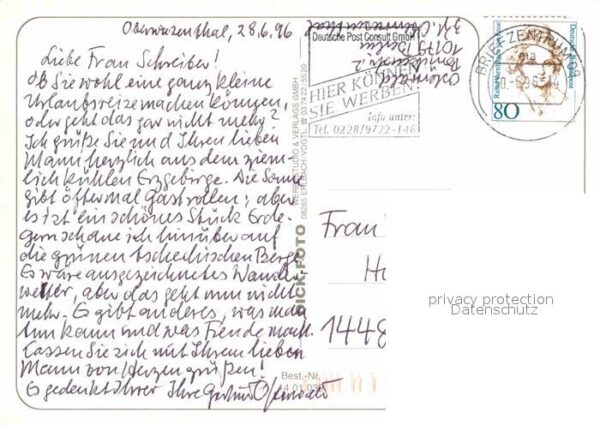 Oberwiesenthal, 28.6.96
Liebe Frau Schreiber!
Ob Sie wohl eine ganz kleine
Urlaubsreise machen können,
oder geht das gar nicht mehr?
Ich grüße Sie und Ihren lieben
Mann herzlich aus dem ziem-
lich kühlen Erzgebirge. Die Sonne
gibt öfter mal Gastrollen; aber
es ist ein schönes Stück Erde.
Gern schaue ich hinüber auf
die grünen tschechischen Berge.
Es wäre ausgezeichnetes Wander-
wetter, aber das geht nun nicht
mehr. Es gibt anderes, was man
tun kann und was Freude macht.
Lassen Sie sich mit Ihrem lieben
Mann von Herzen grüßen!
Es gedenkt Ihrer Ihre
WERBESTUDIO & VERLAGS GMBH
08265 ERLBACH/VOGTL. ☎ 03 74 22 / 55 20
DICK-FOTO
Best.-Nr.
14 01 039
Deutsche Post Consult GmbH
10179 Berlin
HIER KÖNNEN
SIE WERBEN!
Info unter:
Tel. 0228/9722-146
BRIEFZENTRUM 09
Deutsche Bundespost
80
Frau
1448
privacy protection
Datenschutz